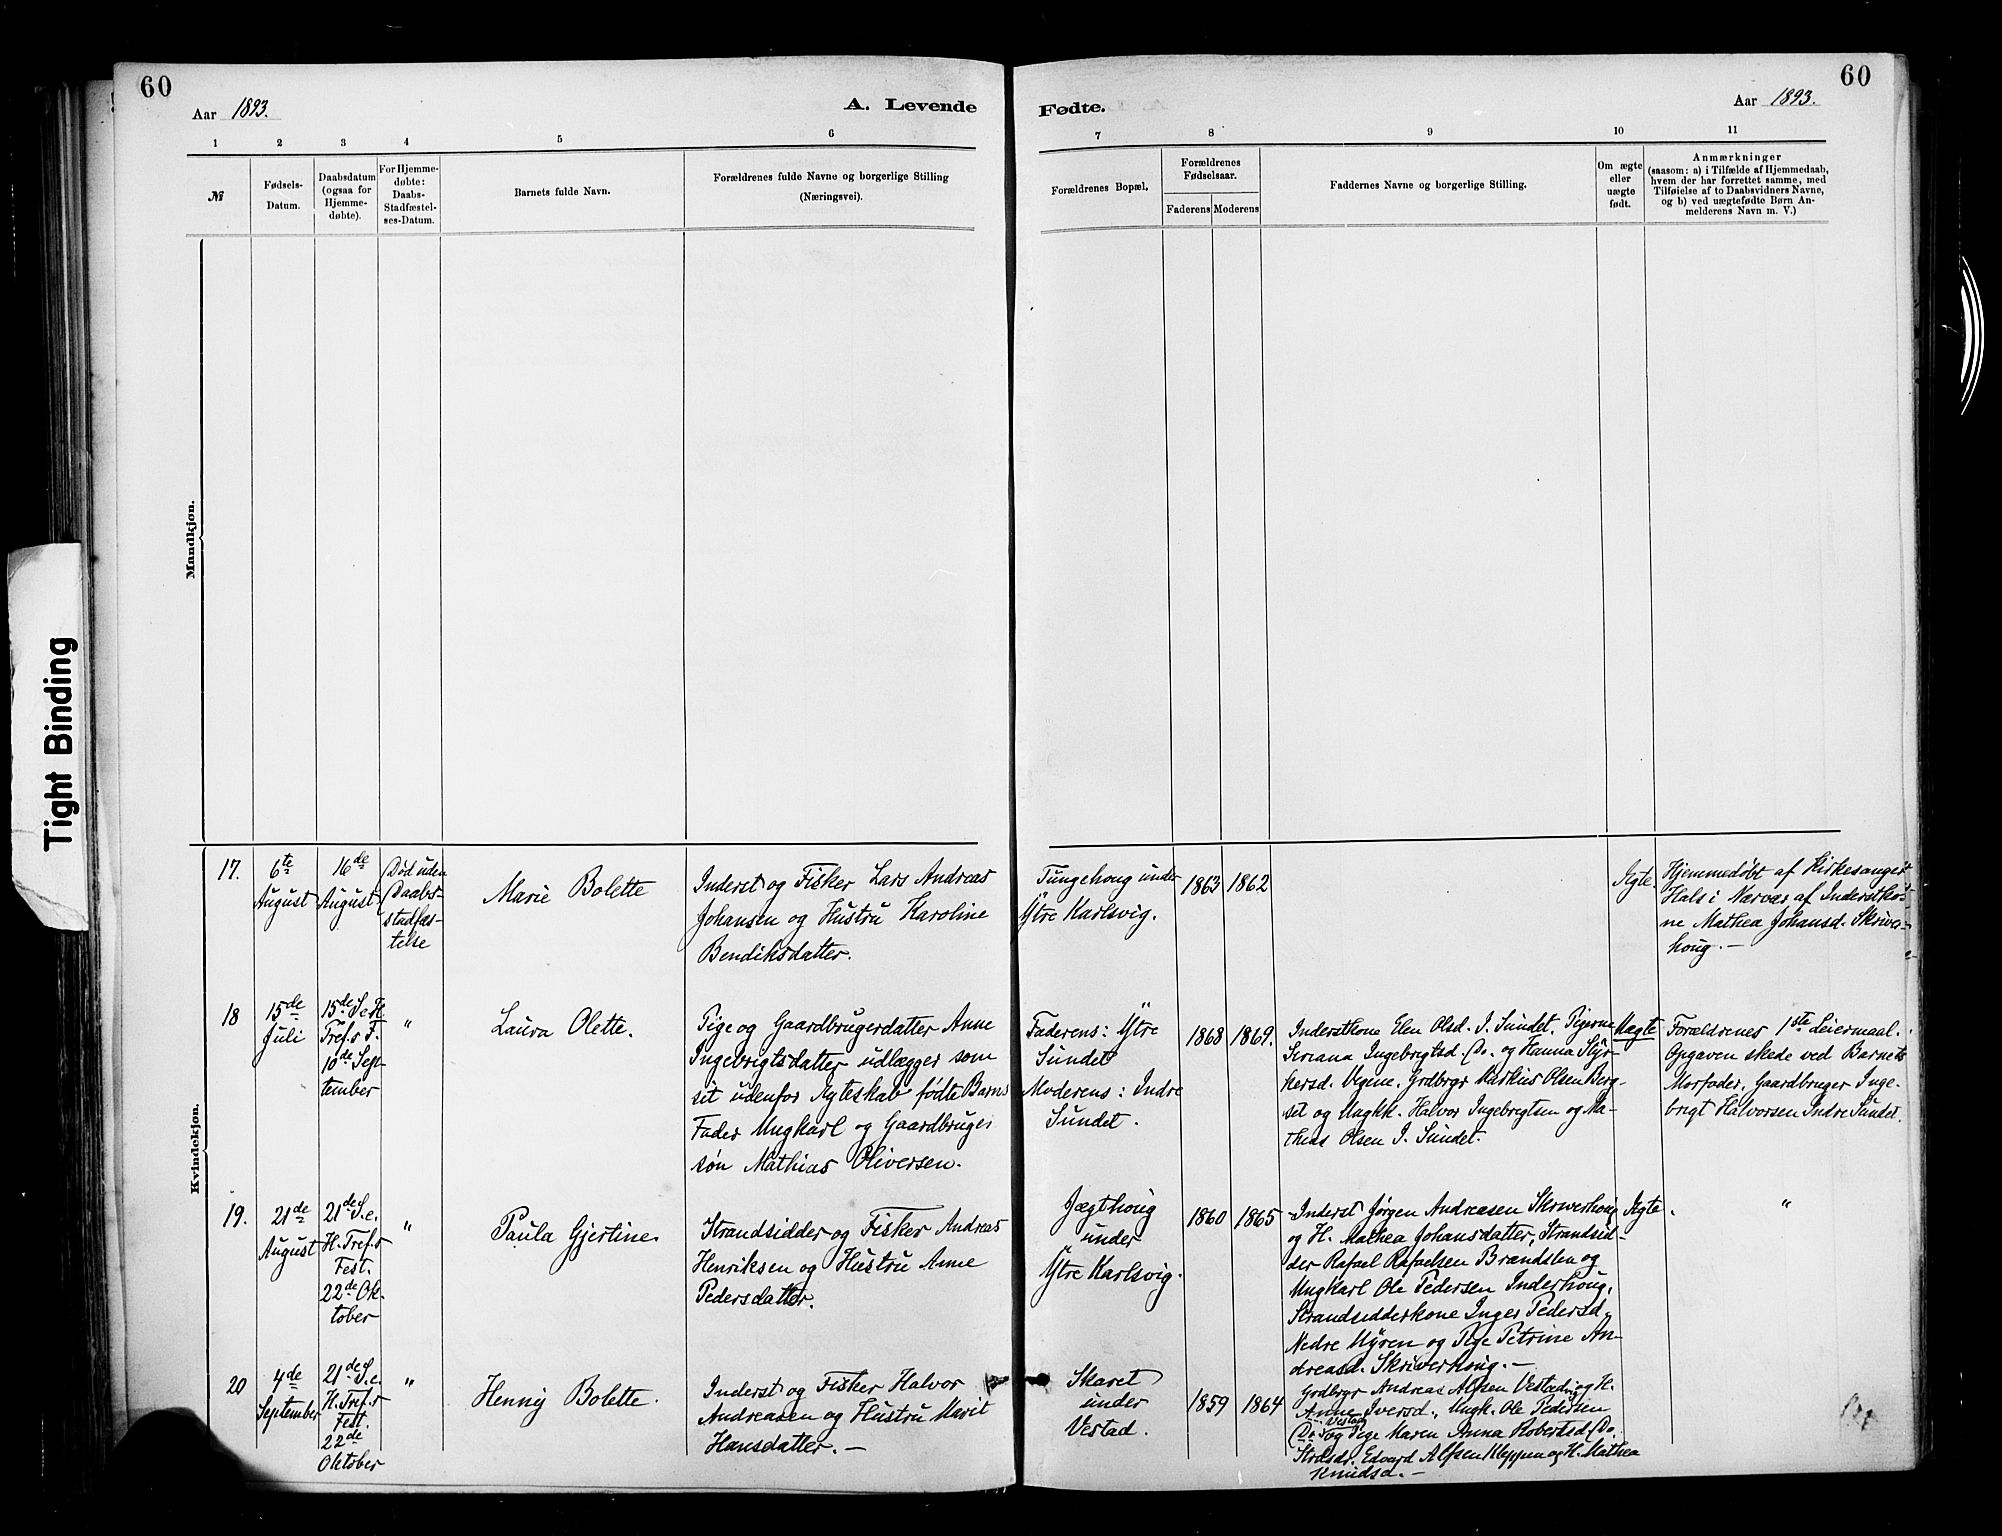 60
60
Aar 1893.
A. Levende
Fødte.
Aar 1893.
1
2
3
4
5
6
7
8
9
10
11
№
Fødsels-
Datum.
Daabsdatum
(ogsaa for
Hjemme-
døbte).
For Hjemme-
døbte:
Daabs-
Stadfæstel-
ses-Datum.
Barnets fulde Navn.
Forældrenes fulde Navne og borgerlige Stilling
(Næringsvei).
Forældrenes Bopæl.
Forældrenes
Fødselsaar.
Faderens
Moderens
Faddernes Navne og borgerlige Stilling.
Om ægte
eller
uægte
født.
Anmærkninger
(saasom: a) i Tilfælde af Hjemmedaab,
hvem der har forrettet samme, med
Tilføielse af to Daabsvidners Navne,
og b) ved uægtefødte Børn An-
melderens Navn m. V.)
Mandkjøn.
Tight Binding
Kvindekjøn.
17.
6te
August
16de
August
Død uden
Daabs-
stadfæs-
telse
Marie Bolette
Inderst og Fisker Lars Andreas
Johansen og Hustru Karoline
Bendiksdatter.
Tungehoug under
Ytre Karlsvig.
1863
1862
Ægte.
Hjemmedøbt af Kirkesanger
Hals i Nærvær af Inderstko-
ne Mathea Johansd. Skriver-
houg.-
18
15de
Juli
15de S. e. H.
Tref.s F.
10de Sep-
tember
"
Laura Olette.
Pige og Gaardbrugerdatter Anne
Ingebrigtsdatter udlægger som
sit udenfor Ægteskab fødte Barns
Fader Ungkarl og Gaardbruger
søn Mathias Oliversen.
Faderens: Ytre
Sundet
Moderens: Indre
Sundet.
1868
1869.
Inderstkone Elen Olsd. I. Sundet. Pigerne
Seriana Ingebrigtsd. Do. og Hanna Styr-
kersd. Vegene. Grdbrgr Markius Olsen Berg-
set og Ungk. Halvor Ingebrigtsen og Ma-
thias Olsen I. Sundet.
Uægte
Forældrenes 1ste Leiermaal.
Opgaven skede ved Barnets
Morfader, Gaardbruger Inge-
brigt Halvorsen Indre Sundet.
19.
21de
August
21de S. e.
H. Tref.s
Fest.
22de Ok-
tober
"
Paula Gjertine.
Strandsidder og Fisker Andreas
Henriksen og Hustru Anne
Pedersdatter.
Jægthoug
under
Ytre Karlsvig.
1860
1865
Inderst Jørgen Andreasen Skriverhoug
og H. Mathea Johansdatter, Strandsid-
der Rafael Rafaelsen Brandslen og
Ungkarl Ole Pedersen Inderhoug,
Strandsidderkone Inger Pedersd.
Nedre Myren og Pige Petrine An-
dreasd. Skriverhoug.-
Ægte.
"
20
4de
September
21de S. e.
H. Tref.s
Fest.
22de
Oktober
"
Henny Bolette.
Inderst og Fisker Halvor
Andreasen og Hustru Marit
Hansdatter.-
Skaret
under
Vestad.
1859
1864
Grdbrgr Andreas Alfsen Vestad og H.
Anne Iversd., Ungk. Ole Pedersen
Vestad
Do. og Pige Maren Anna Robertsd. Do.
Strdsdr. Edvard Alfsen Kleppen og H. Mathea
Knudsd.-